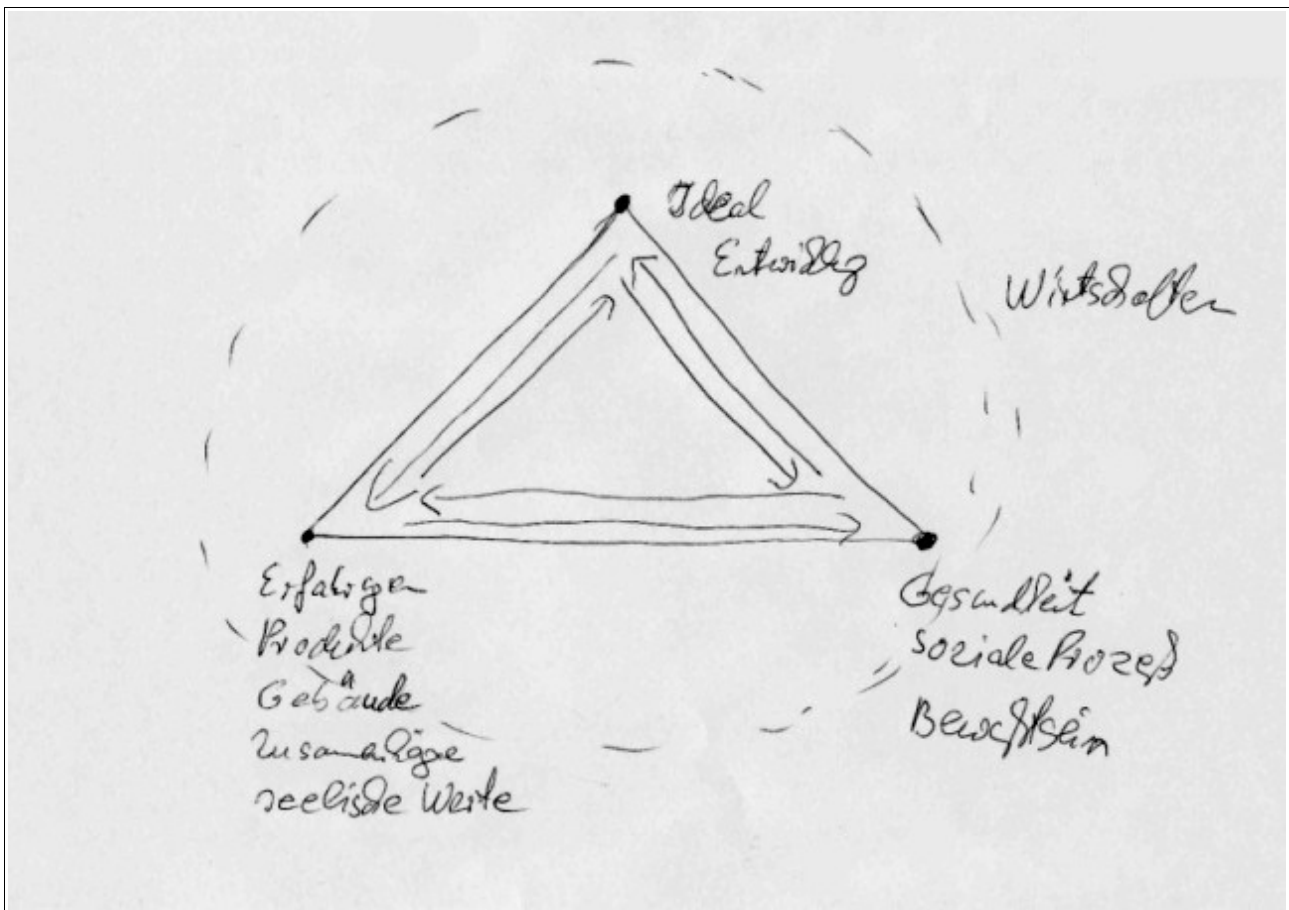 Ideal
Entwicklg
Wirtschaften
Erfahrungen
Produkte
Gebäude
Zusammenhänge
seelische Werte
Gesundheit
soziale Prozeß
Bewußtsein